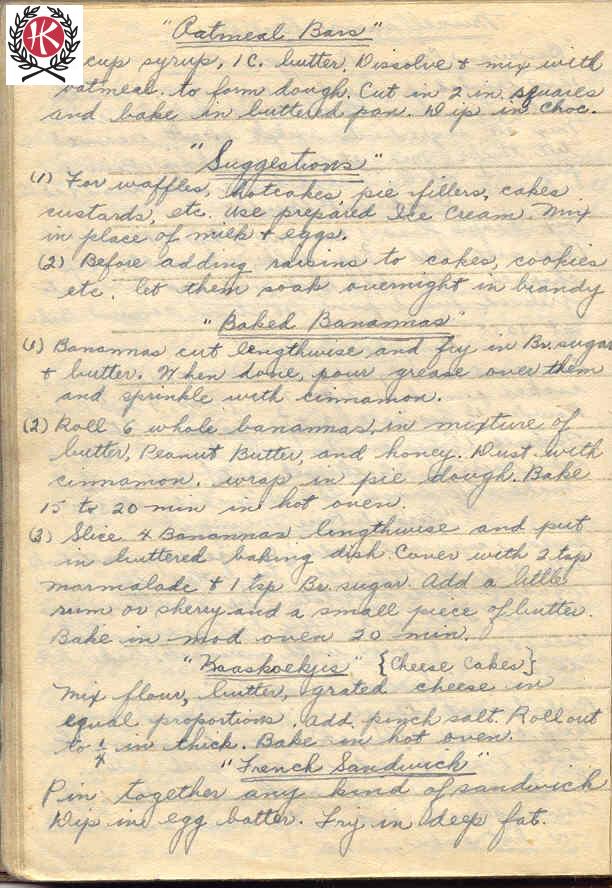 HK
"Oatmeal Bars"
cup syrup, 1 C. butter Dissolve & mix with
oatmeal. to form dough. Cut in 2 in squares
and bake in buttered pan. Dip in choc.
"Suggestions"
(1) For waffles, hotcakes, pie fillers, cakes
custards, etc. use prepared Ice Cream Mix
in place of milk & eggs.
(2) Before adding raisins to cakes, cookies
etc. let them soak overnight in brandy
"Baked Banannas"
(1) Banannas cut lengthwise and fry in Br. sugar
& butter. When done, pour grease over them
and sprinkle with cinnamon.
(2) Roll 6 whole banannas, in mixture of
butter, Peanut Butter, and honey. Dust with
cinnamon. wrap in pie dough. Bake
15 to 20 min in hot oven.
(3) Slice 4 Banannas lingthwise and put
in buttered baking dish. Cover with 2 tsp
marmalade & 1 tsp Br. sugar. Add a little
rum or sherry and a small piece of butter.
Bake in mod oven 20 min.
"Kaaskoekjis" {Cheese Cakes}
Mix flour, butter, grated cheese in
equal proportions. Add pinch salt. Roll out
to 1/4 in thick. Bake in hot oven.
"French Sandwich"
Pin together any kind of sandwich
Dip in egg batter. Fry in deep fat.